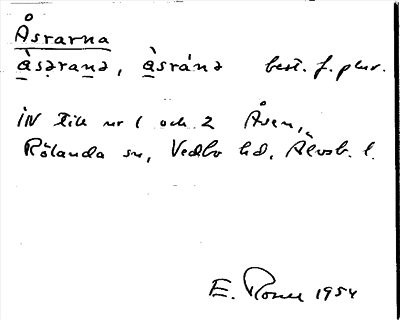 Åsrarna
àsərana, àsránə best. f. plur.
IN till nr 1 och 2 Åsen,
Rölanda sn, Vedbo hd, Älvsb. l.
E. 1954